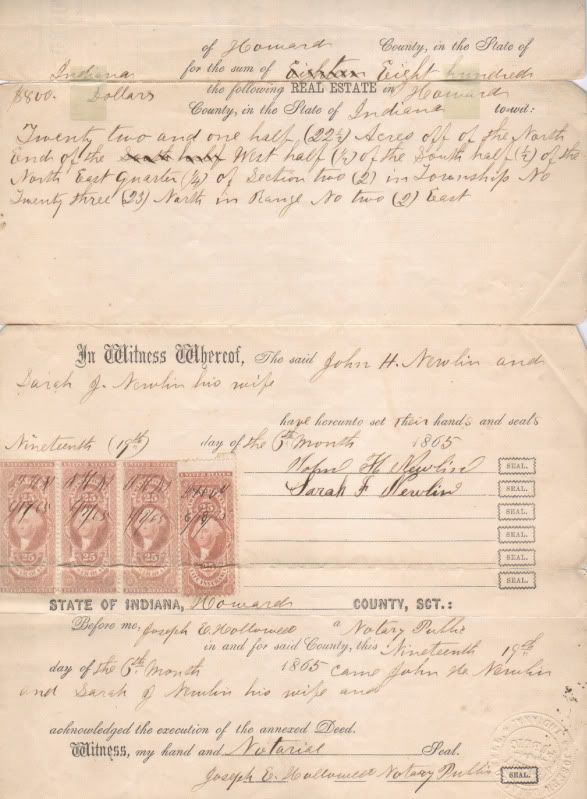 of Howard County, in the State of
Indiana for the sum of Eighteen Eight hundred
$800. Dollars the following REAL ESTATE in Howard
County, in the State of Indiana to-wit:
Twenty two and one half (22½) Acres off of the North
End of the South half West half (½) of the South half (½) of the
North East Quarter (¼) of Section two (2) in Township No
Twenty three (23) North in Range No two (2) East
In Witness Whereof, The said John H. Newlin and
Sarah J. Newlin his wife
have hereunto set their hands and seals
Nineteenth (19th) day of the 6th Month 1865
John H Newlin SEAL.
Sarah J Newlin SEAL.
SEAL.
SEAL.
SEAL.
SEAL.
25 25 25
STATE OF INDIANA, Howard COUNTY, SCT.:
Before me, Joseph E. Hollowed a Notary Public
in and for said County, this Nineteenth 19th
day of the 6th Month 1865 came John H. Newlin
and Sarah J Newlin his wife and
acknowledged the execution of the annexed Deed.
Witness, my hand and Notarial Seal.
Joseph E. Hollowed Notary Public SEAL.